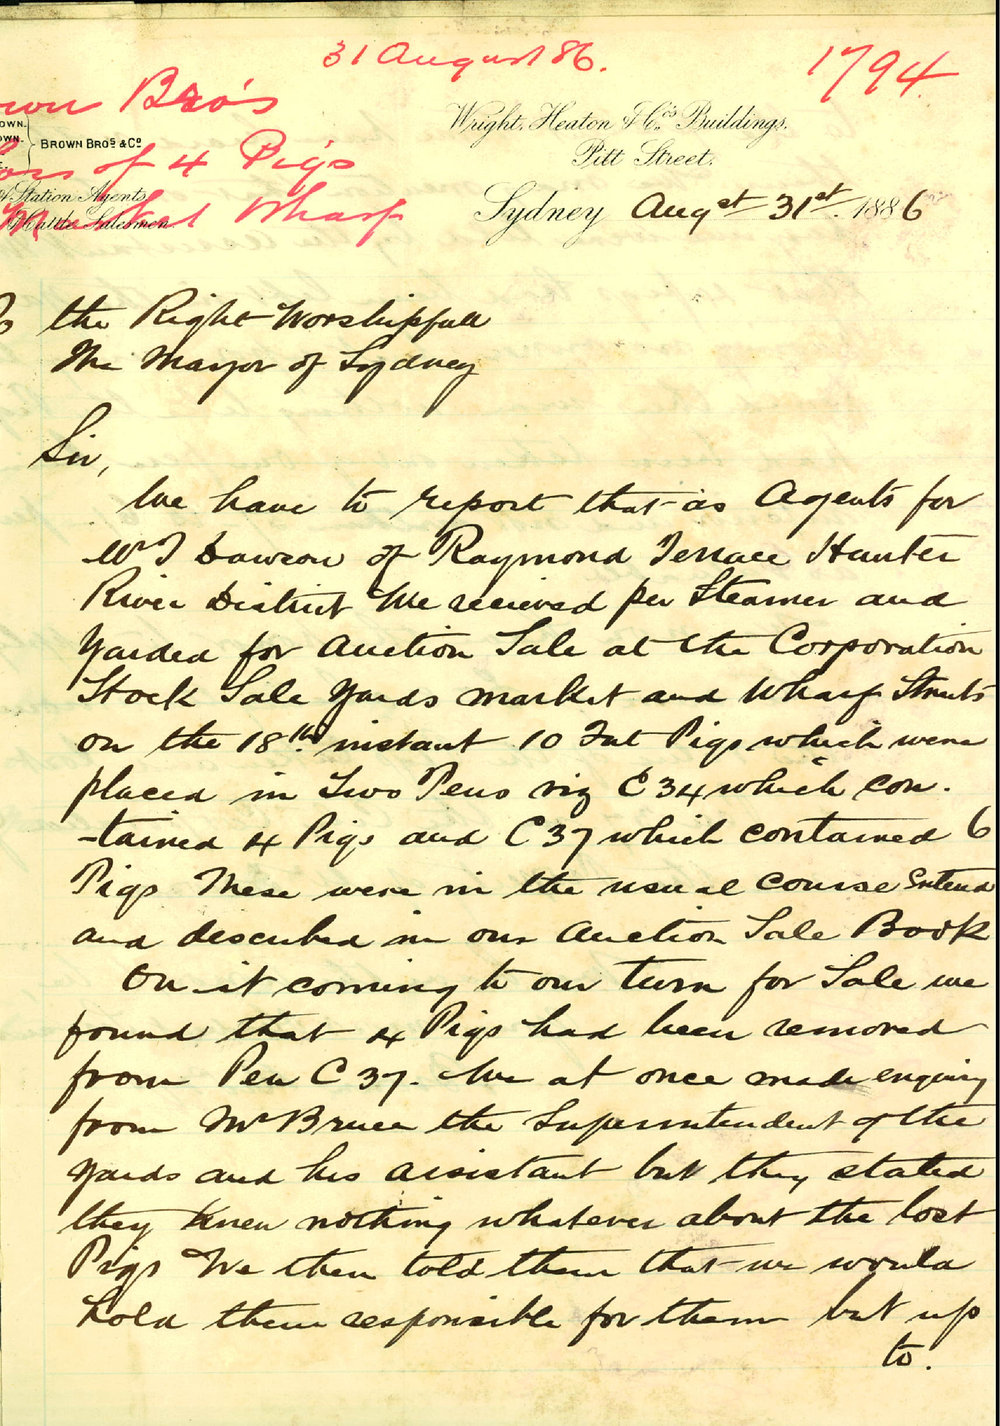 31 August 86.
1794
own Bro's
OWN.
OWN.
BROWN BROS & Co
Loss of 4 Pigs
Station Agents
Market Wharf
Cattle Salesmen
Wright, Heaton & Co's Buildings,
Pitt Street,
Sydney Augst 31st 1886
To the Right Worshipfull
The Mayor of Sydney
Sir,
We have to report that as Agents for
Mr J Dawson of Raymond Terrace Hunter
River District We recieved per Steamer and
Yarded for Auction Sale at the Corporation
Stock Sale Yards market and Wharf Streets
on the 18th instant 10 Fat Pigs which were
placed in Two Pens viz C34 which con-
-tained 4 Pigs and C37 which contained 6
Pigs These were in the usual course Entered
and described in our Auction Sale Book
On it coming to our turn for Sale we
found that 4 Pigs had been removed
from Pen C37. We at once made enquiry
from Mr Bruce the Superintendent of the
Yards and his assistant but they stated
they knew nothing whatever about the lost
Pigs We then told them that we would
hold them responsible for them but up
to.